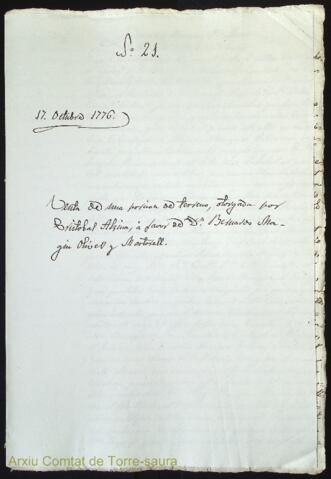 Nº 21.
17. Octubre 1776.
Venta de una porcion de terreno, otorgada por
Cristobal Alzina, à favor de Dn. Bernardo Ma-
gin Olives y Martorell.
Arxiu Comtat de Torre-saura